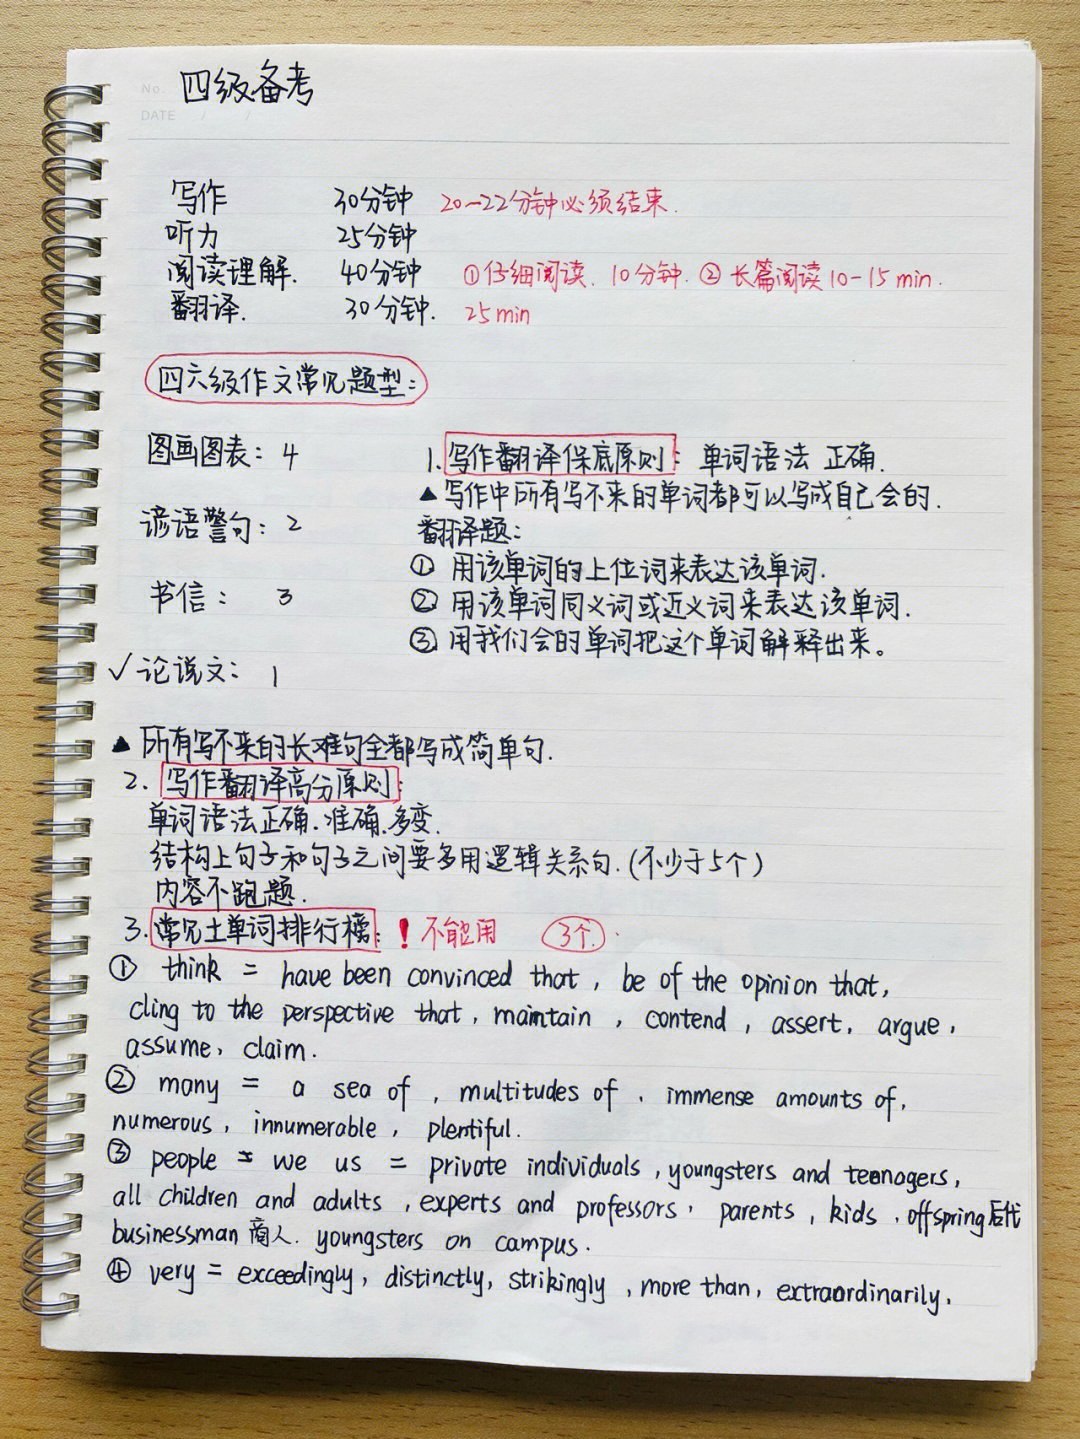 No.
四级备考
DATE / /
写作 30分钟 20-22分钟必须结束.
听力 25分钟
阅读理解. 40分钟 ①仔细阅读. 10分钟. ② 长篇阅读10-15 min.
翻译. 30分钟. 25min
四六级作文常见题型:
图画图表: 4
谚语警句: 2
书信: 3
✓论说文: 1
1. 写作翻译保底原则: 单词语法 正确.
▲写作中所有写不来的单词都可以写成自己会的.
翻译题:
① 用该单词的上位词来表达该单词.
② 用该单词同义词或近义词来表达该单词.
③ 用我们会的单词把这个单词解释出来。
▲ 所有写不来的长难句全都写成简单句.
2. 写作翻译高分原则:
单词语法正确.准确.多变.
结构上句子和句子之间要多用逻辑关系句.(不少于5个)
内容不跑题.
3. 常见土单词排行榜: ! 不能用 3个.
① think = have been convinced that, be of the opinion that,
cling to the perspective that, maintain, contend, assert, argue,
assume, claim.
② many = a sea of, multitudes of, immense amounts of,
numerous, innumerable, plentiful.
③ people = we us = private individuals, youngsters and teenagers,
all children and adults, experts and professors, parents, kids, offspring后代
businessman 商人. youngsters on campus.
④ very = exceedingly, distinctly, strikingly, more than, extraordinarily,